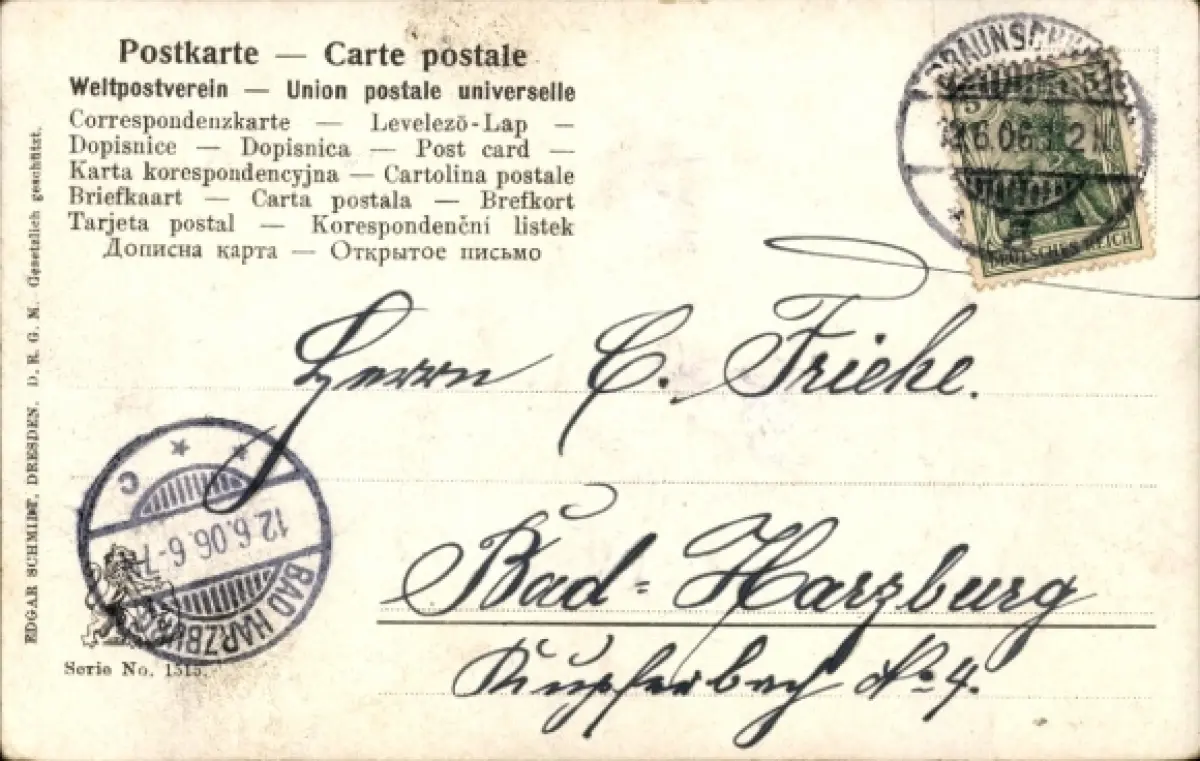 Postkarte — Carte postale
Weltpostverein — Union postale universelle
Correspondenzkarte — Levelező-Lap —
Dopisnice — Dopisnica — Post card —
Karta korespondencyjna — Cartolina postale
Briefkaart — Carta postala — Brefkort
Tarjeta postal — Korespondenční listek
Дописна карта — Открытое письмо
BRAUNSCHW
6.06.
5 5
DEUTSCHES REICH
Herrn C. Fricke.
Bad-Harzburg
No 4.
C
12.6.06.6-7
BAD HARZBURG
Serie No. 1515.
EDGAR SCHMIDT, DRESDEN. D. R. G. M. Gesetzlich geschützt.